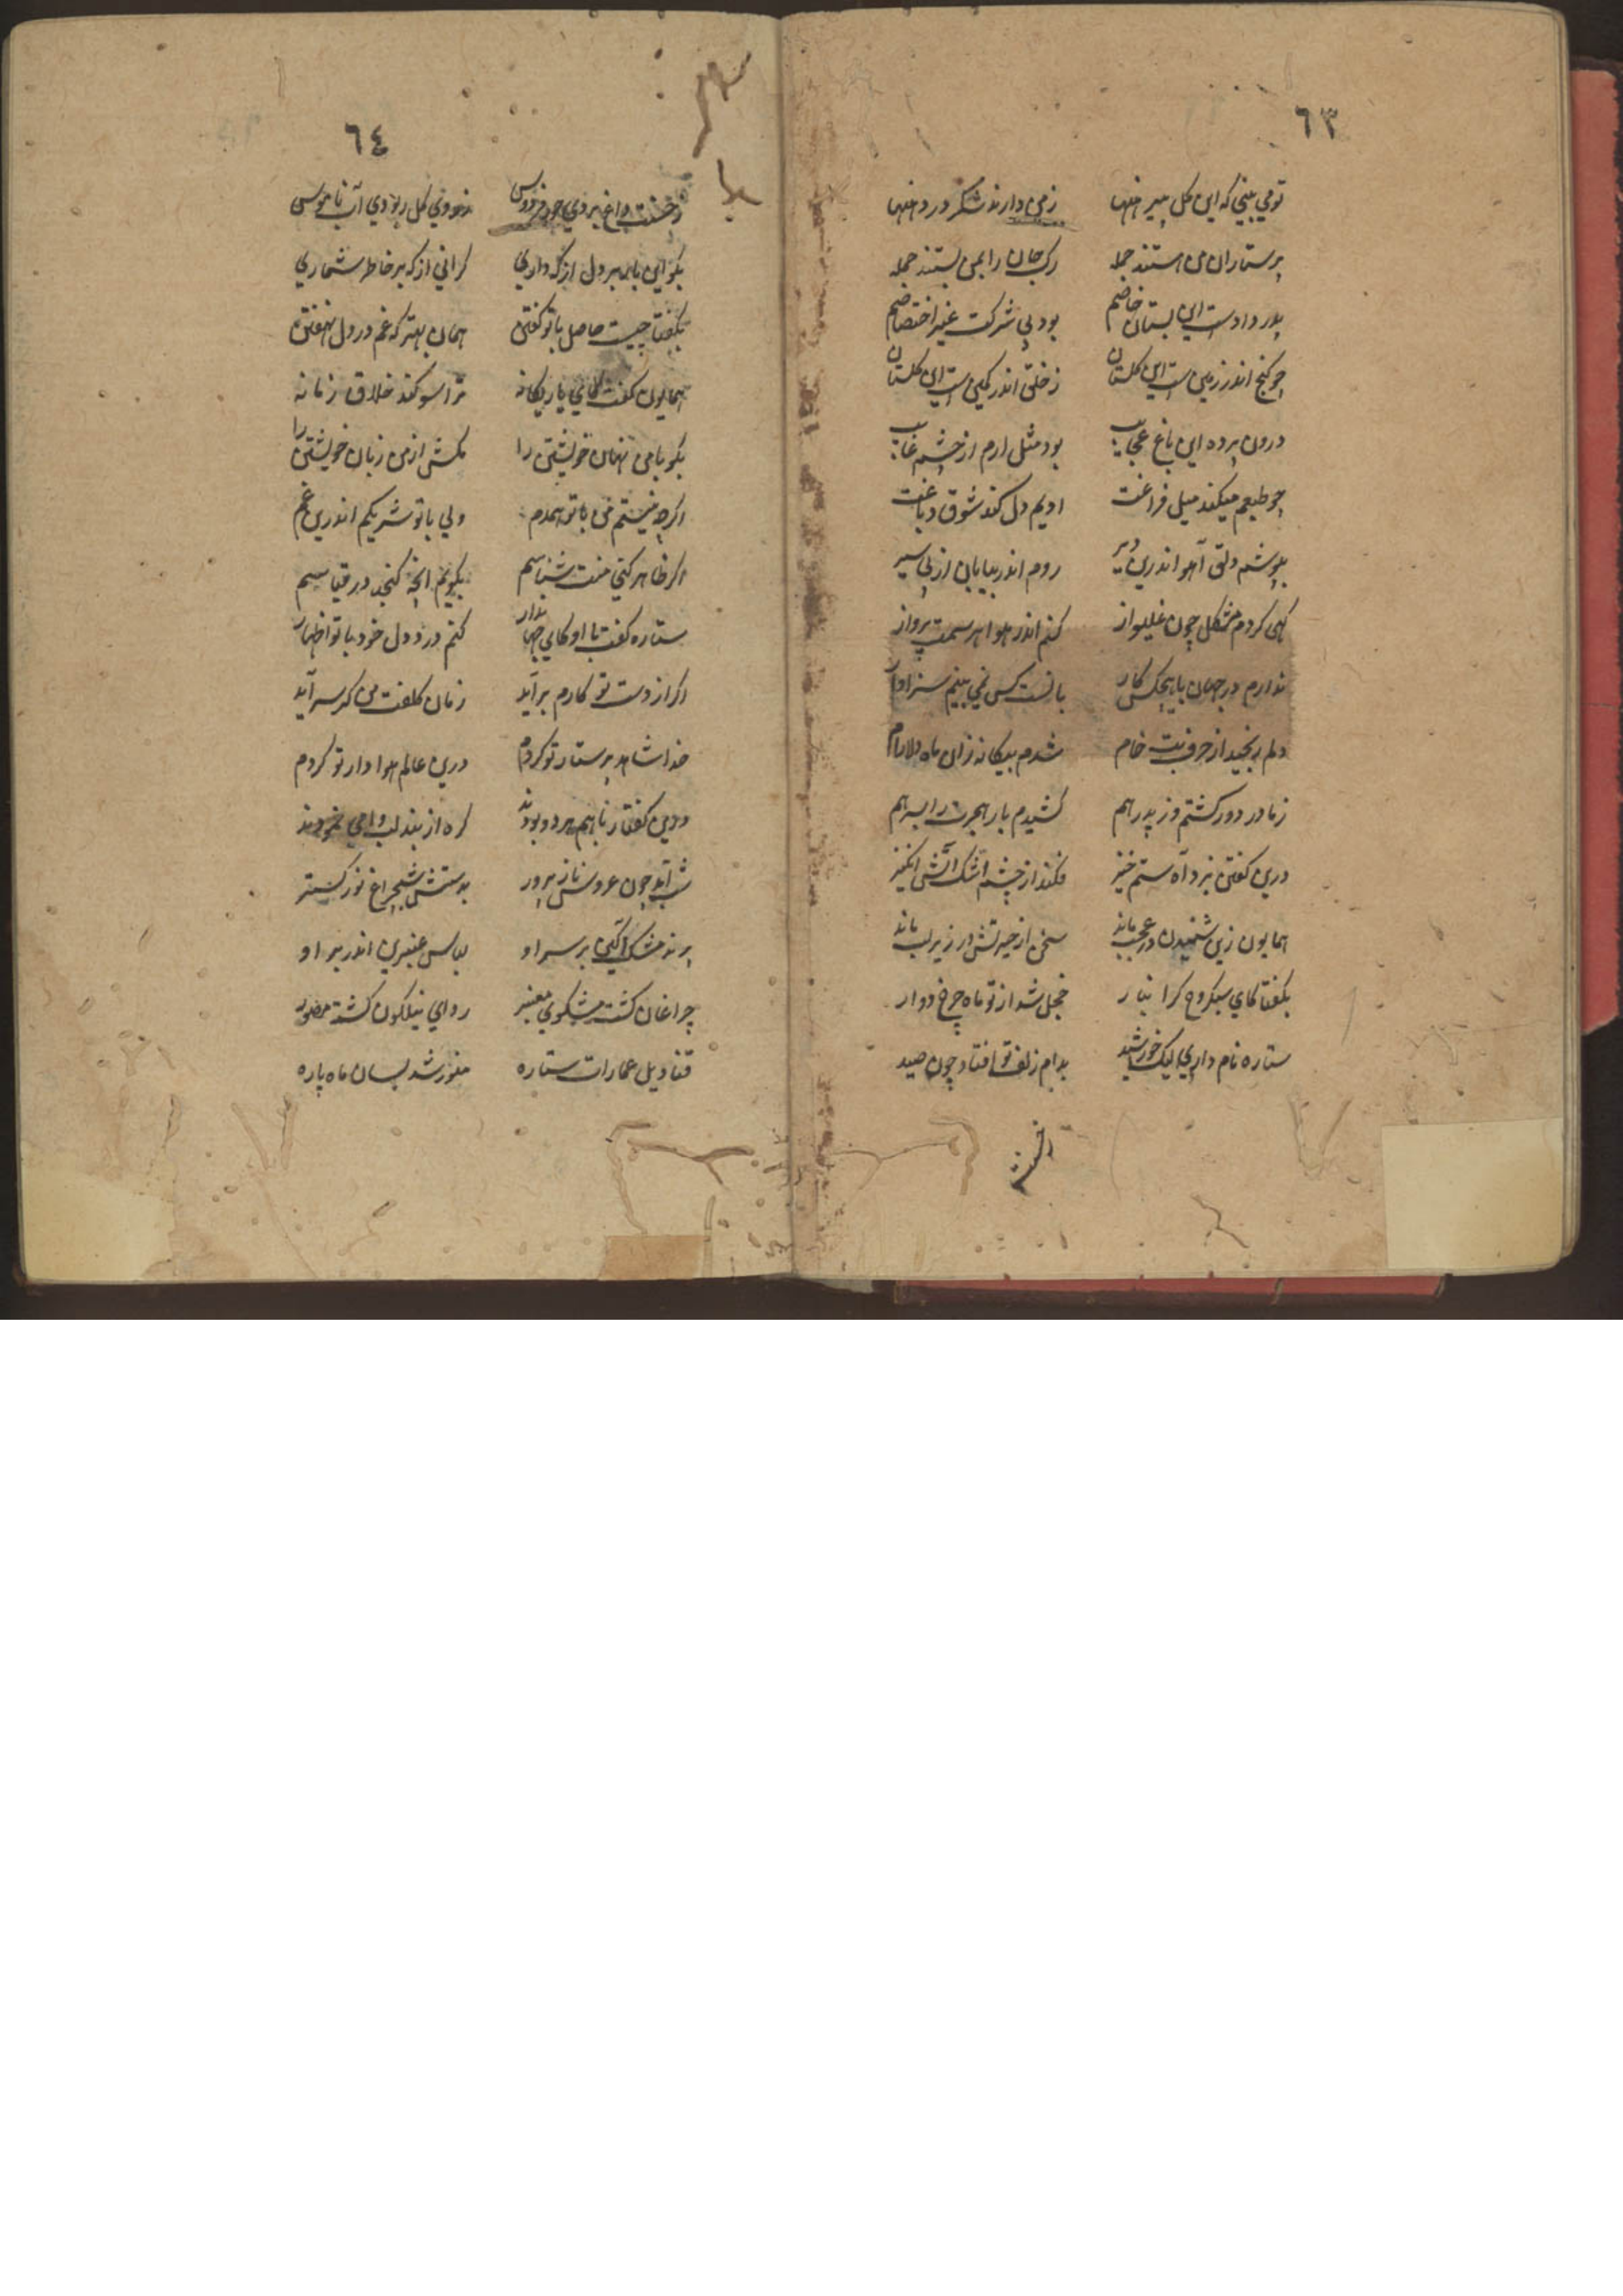 ٦٣
تو می بینی که این کل پیرهنها زمن دارند شکر در دهنها
پرستاران من هستند جمله رک جان را بمن بستند جمله
پدر دادست این بستان خاصم بود بی شرکت غیر اختصاصم
چو کنج اندر زمین است این کلستان ز خلق اندر کمین است این کلستان
درون پرده این باغ عجایب بود مثل ارم از چشم غایب
چو طبعم میکند میل فراغت ادیم دل کند شوق دباغت
بپوشم دلق آهو اندرین دیر روم اندر بیابان از پی سیر
کهی کردم مشکل چون غلیواز کنم اندر هوا هر سمت پرواز
ندارم در جهان با هیچکس کار بانست کس نمی بینم سزاوار
دلم رنجید از حرفیت خام شدم بیکانه زان ماه دلارام
ز مادر دور کشتم وز پدر هم کشیدم بار هجرت را بسر هم
درین کفتن بزد آه ستم خیز فکند از چشم اشک آتش انکیز
همایون زین شنیدن در عجب ماند سخن از حیرتش در زیر لب ماند
بکفتا کای سبکروح کرانبار خجل شد از تو ماه چرخ دوار
ستاره نام داری لیک خورشید بدام زلف تو افتاد چون صید
٦٤
رخست داغ بر دی حور فردوس ربودی آب ناموس
بکو این بار بر دل از که داری کرانی از که بر خاطر شماری
بکفتا چیست حاصل با تو کفتن همان بهتر که غم در دل نهفتن
همایون کفت کای یار یکانه ترا سوکند خلاق زمانه
بکو با من نهان خویشتن را مکش از من زبان خویشتن را
اکرچه نیستم من با تو همدم ولی با تو شریکم اندرین غم
اکر ظاهر کنی منت شناسم بکویم آنچه کنجد در قیاسم
ستاره کفت با او کای جهاندار کنم درد دل خود با تو اظهار
اکر از دست تو کارم برآید زمان کلفت من کر سرآید
خدا شاهد پرستار تو کردم درین عالم هوادار تو کردم
درین کفتار با هم هر دو بودند کره از بند لب وا می نمودند
شب آمد چون عروس ناز پرور بدستش شبچراغ نور کستر
پرند مشک آکین بر سر او لباس عنبرین اندر بر او
چراغان کشت مشکوی معنبر ردای نیلکون کشت
قنادیل عمارات ستاره منور شد بسان ماه پاره